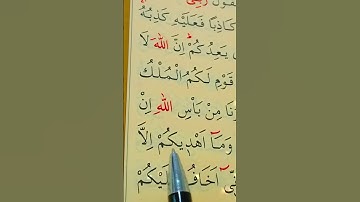 كَاذِبًا فَعَلَيْهِ كَذِبُهُ
يَعِدُكُمْ اِنَّ اللّٰهَ لَا
قَوْمِ لَكُمُ الْمُلْكُ
مِنْ بَأْسِ اللّٰهِ اِنْ
وَمَٓا اَهْد۪يكُمْ اِلَّا
اَخَافُ عَلَيْكُمْ